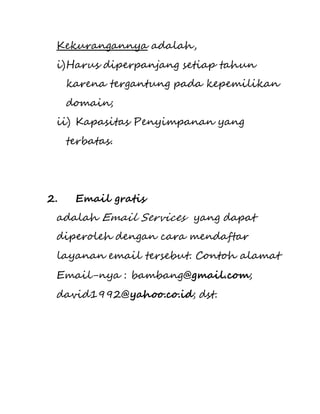 Kekurangannya adalah,
i)Harus diperpanjang setiap tahun
karena tergantung pada kepemilikan
domain;
ii) Kapasitas Penyimpanan yang
terbatas.
2. Email gratis
adalah Email Services yang dapat
diperoleh dengan cara mendaftar
layanan email tersebut. Contoh alamat
Email-nya : bambang@gmail.com,
david1992@yahoo.co.id, dst.